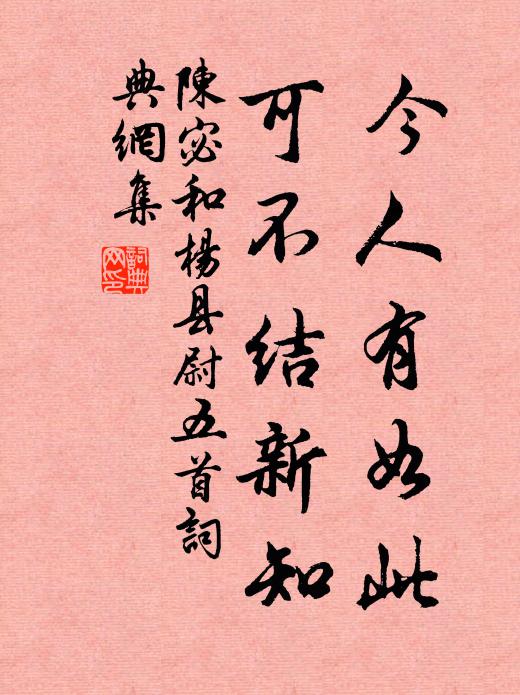 今人有如此
可不结新知
陳宓和楊县尉五首詞
典網集
詞典
网印